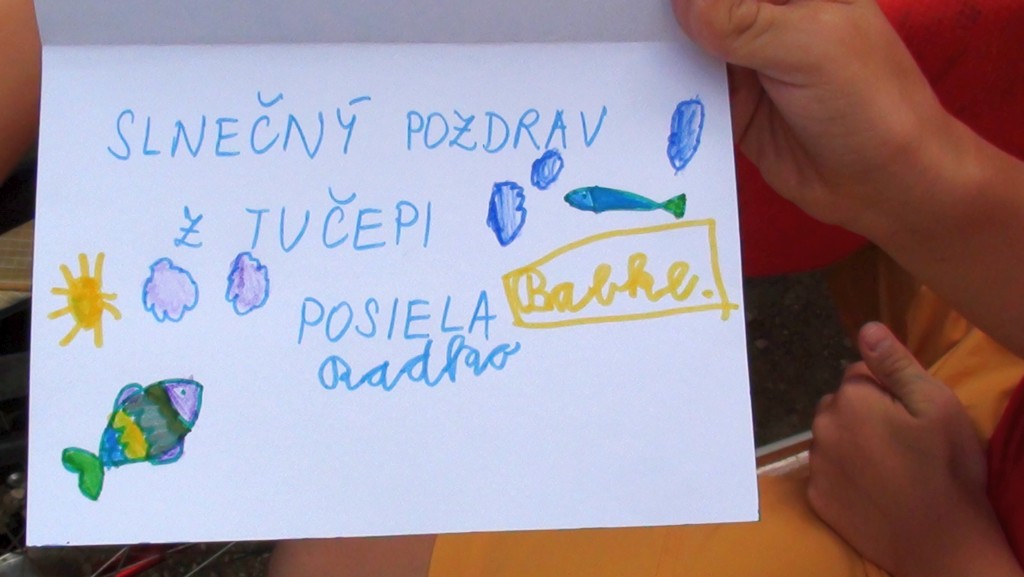 SLNEČNÝ POZDRAV
Z TUČEPI
POSIELA Babke.
Radko